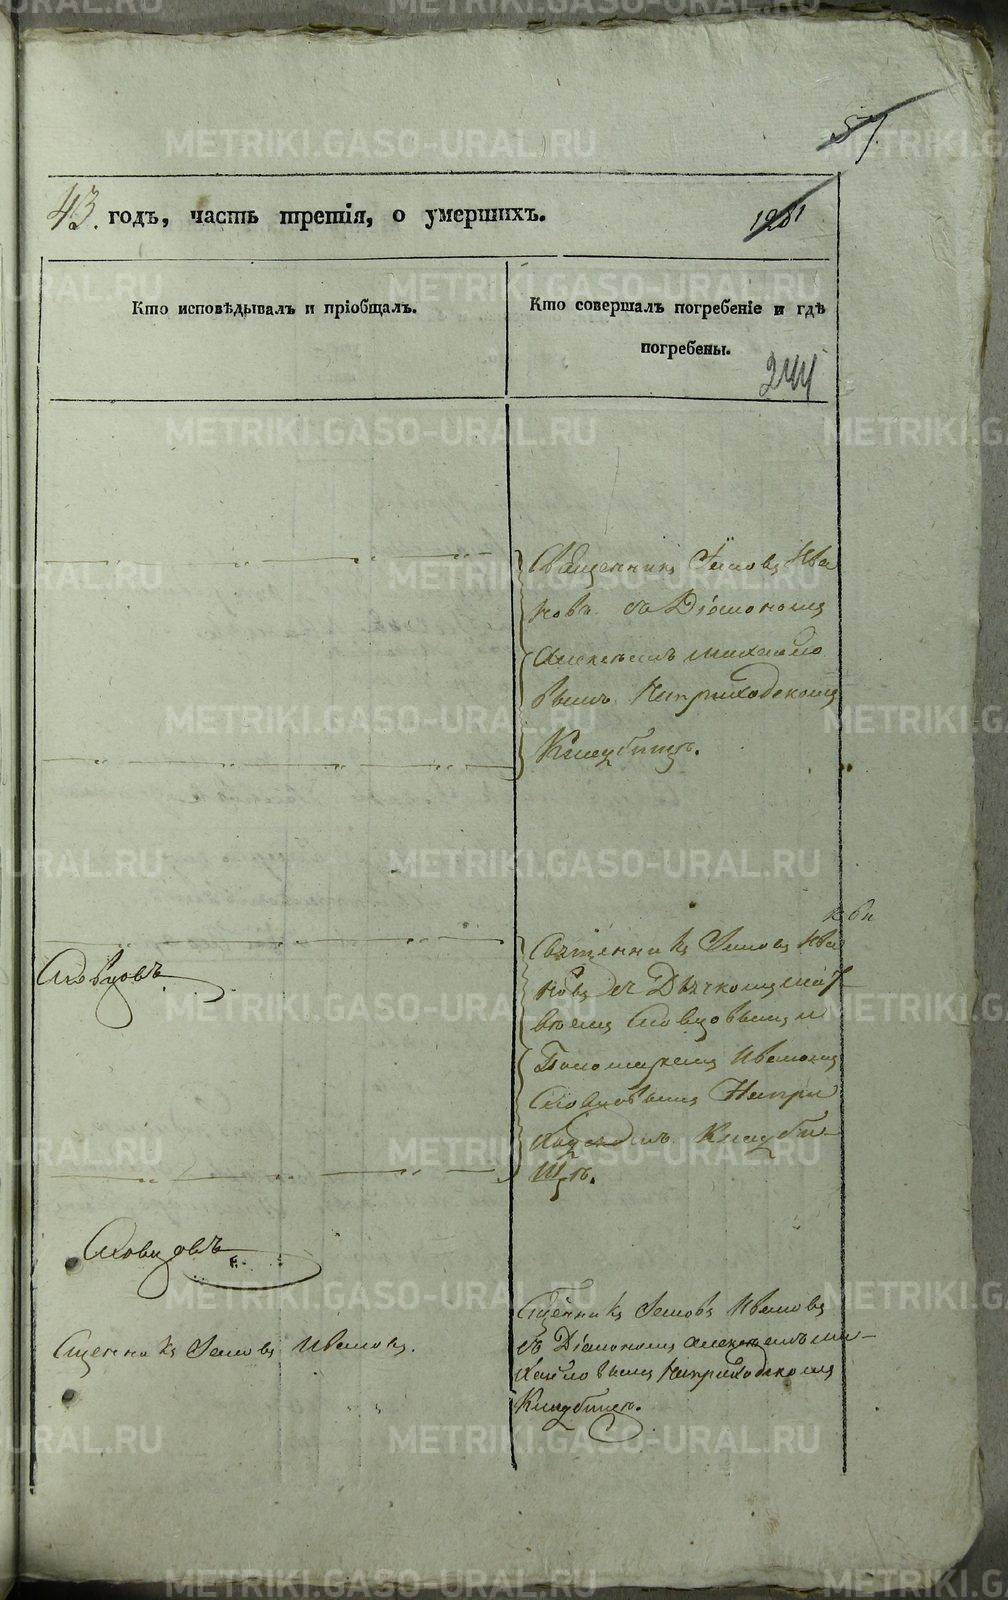 57.
43. годъ, часть третія, о умершихъ.
1281
Кто исповѣдывалъ и пріобщалъ.
Кто совершалъ погребеніе и гдѣ
погребены.
244
Священникъ Іаковъ Ива
новъ съ Діакономъ
Алексѣемъ Михайло
вымъ на приходскомъ
Кладбищѣ.
Священникъ Іаковъ Ива
новъ съ Дьячкомъ Мат
вѣемъ Словцовымъ и
Пономаремъ Иваномъ
Словцовымъ на при
ходскомъ кладби
щѣ.
Словцовъ
Словцовъ
Сщенникъ Іаковъ Ивановъ.
Сщенникъ Іаковъ Ивановъ
съ Діакономъ Алексѣемъ Ми-
хайловымъ на приходскомъ
Кладбищѣ.
METRIKI.GASO-URAL.RU